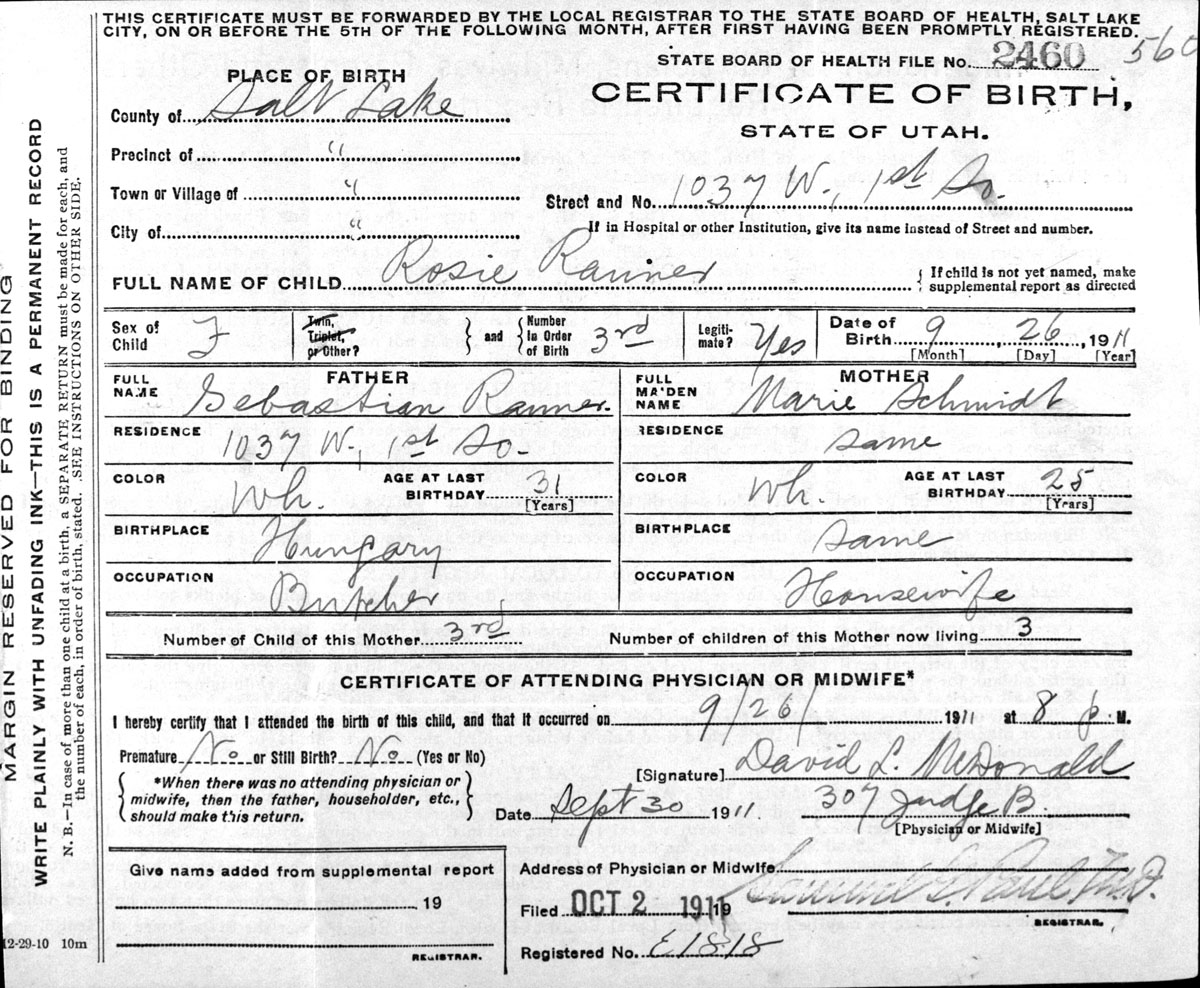 THIS CERTIFICATE MUST BE FORWARDED BY THE LOCAL REGISTRAR TO THE STATE BOARD OF HEALTH, SALT LAKE
CITY, ON OR BEFORE THE 5TH OF THE FOLLOWING MONTH, AFTER FIRST HAVING BEEN PROMPTLY REGISTERED.
560
STATE BOARD OF HEALTH FILE No. 2460
PLACE OF BIRTH
CERTIFICATE OF BIRTH,
STATE OF UTAH.
County of Salt Lake
Precinct of "
Town or Village of "
Street and No. 1037 W., 1st So.
City of "
If in Hospital or other Institution, give its name instead of Street and number.
FULL NAME OF CHILD Rosie Ranner
{ If child is not yet named, make
supplemental report as directed
Sex of Child F
Twin, Triplet, or Other? } and { Number in Order of Birth 3rd
Legitimate? Yes
Date of Birth 9, 26, 1911
[Month] [Day] [Year]
FATHER
FULL NAME Sebastian Ranner.
RESIDENCE 1037 W., 1st So-
COLOR Wh. AGE AT LAST BIRTHDAY 31 [Years]
BIRTHPLACE Hungary
OCCUPATION Butcher
MOTHER
FULL MAIDEN NAME Marie Schmidt
RESIDENCE same
COLOR Wh. AGE AT LAST BIRTHDAY 25 [Years]
BIRTHPLACE same
OCCUPATION Housewife
Number of Child of this Mother 3rd Number of children of this Mother now living 3
CERTIFICATE OF ATTENDING PHYSICIAN OR MIDWIFE*
I hereby certify that I attended the birth of this child, and that it occurred on 9/26/ 1911 at 8 p. M.
Premature No or Still Birth? No (Yes or No)
[Signature] David L. McDonald
{ *When there was no attending physician or
midwife, then the father, householder, etc.,
should make this return. }
Date Sept 30 1911 307 Judge B.
[Physician or Midwife]
Give name added from supplemental report
19
REGISTRAR.
Address of Physician or Midwife
Filed OCT 2 1911 19
REGISTRAR.
Registered No. E1818
12-29-10 10m
MARGIN RESERVED FOR BINDING
WRITE PLAINLY WITH UNFADING INK—THIS IS A PERMANENT RECORD
N. B.—In case of more than one child at a birth, a SEPARATE RETURN must be made for each, and
the number of each, in order of birth, stated. SEE INSTRUCTIONS ON OTHER SIDE.